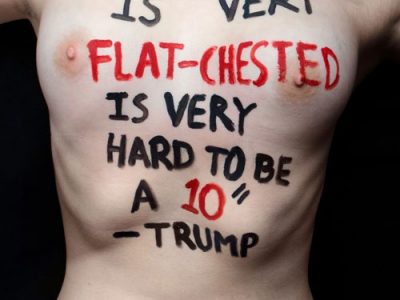 IS VERY
FLAT-CHESTED
IS VERY
HARD TO BE
A 10"
-TRUMP